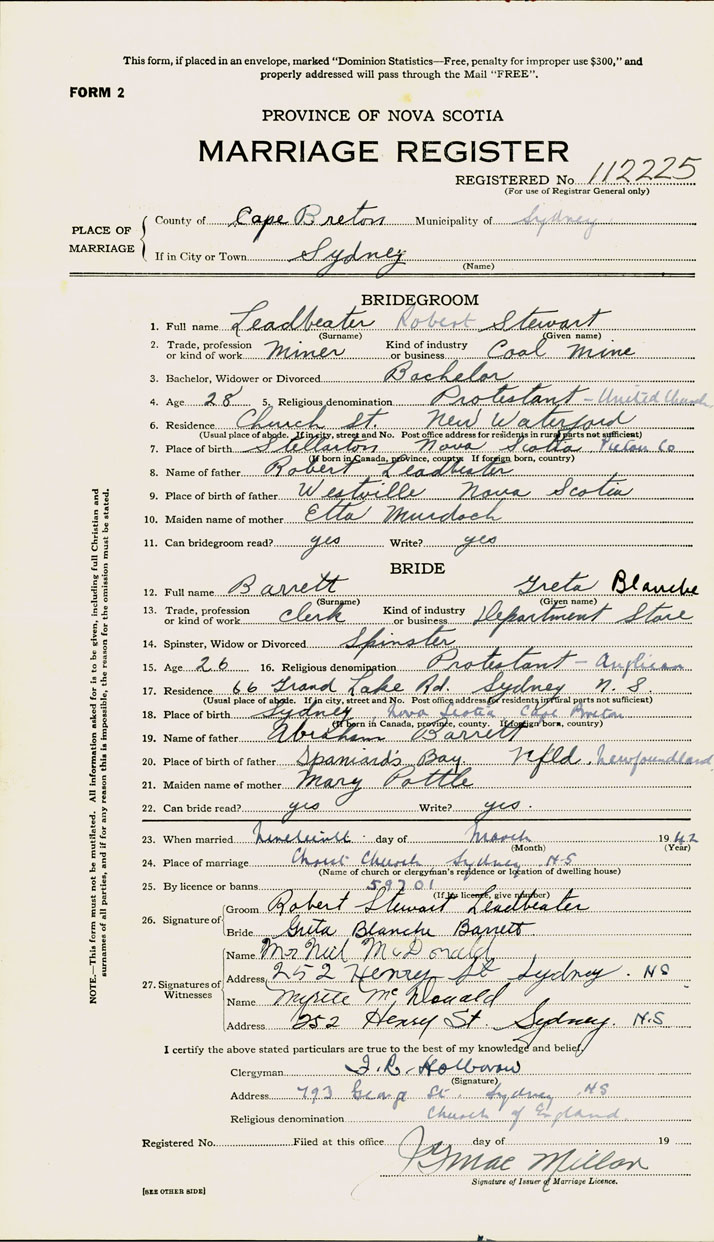 This form, if placed in an envelope, marked "Dominion Statistics—Free, penalty for improper use $300," and
properly addressed will pass through the Mail "FREE".
FORM 2
PROVINCE OF NOVA SCOTIA
MARRIAGE REGISTER
REGISTERED No. 112225
(For use of Registrar General only)
PLACE OF MARRIAGE
County of Cape Breton Municipality of Sydney
If in City or Town Sydney
(Name)
BRIDEGROOM
1. Full name Leadbeater Robert Stewart
(Surname) (Given name)
2. Trade, profession or kind of work Miner Kind of industry or business Coal Mine
3. Bachelor, Widower or Divorced Bachelor
4. Age 28 5. Religious denomination Protestant - United Church
6. Residence Church St. New Waterford
(Usual place of abode. If in city, street and No. Post office address for residents in rural parts not sufficient)
7. Place of birth Stellarton Nova Scotia Pictou Co
(If born in Canada, province, county. If foreign born, country)
8. Name of father Robert Leadbeater
9. Place of birth of father Westville Nova Scotia
10. Maiden name of mother Etta Murdoch
11. Can bridegroom read? yes Write? yes
BRIDE
12. Full name Barrett Greta Blanche
(Surname) (Given name)
13. Trade, profession or kind of work Clerk Kind of industry or business Department Store
14. Spinster, Widow or Divorced Spinster
15. Age 26 16. Religious denomination Protestant - Anglican
17. Residence 66 Grand Lake Rd. Sydney N. S.
(Usual place of abode. If in city, street and No. Post office address for residents in rural parts not sufficient)
18. Place of birth Sydney Nova Scotia Cape Breton
(If born in Canada, province, county. If foreign born, country)
19. Name of father Abraham Barrett
20. Place of birth of father Spaniard's Bay. Nfld. Newfoundland
21. Maiden name of mother Mary Pottle
22. Can bride read? yes Write? yes.
23. When married day of March 1942
(Month) (Year)
24. Place of marriage Christ Church Sydney N.S
(Name of church or clergyman's residence or location of dwelling house)
25. By licence or banns 59701
(If by license, give number)
26. Signature of
Groom Robert Stewart Leadbeater
Bride Greta Blanche Barrett
27. Signatures of Witnesses
Name Mr Neil McDonald
Address 252 Henry St Sydney. NS
Name Myrtle McDonald
Address 252 Henry St. Sydney. N.S
I certify the above stated particulars are true to the best of my knowledge and belief,
Clergyman
(Signature)
Address 793 George St. Sydney NS
Religious denomination Church of England
Registered No. Filed at this office day of 19
MacMillan
Signature of Issuer of Marriage Licence.
[SEE OTHER SIDE]
NOTE.—This form must not be mutilated. All information asked for is to be given, including full Christian and
surnames of all parties, and if for any reason this is impossible, the reason for the omission must be stated.